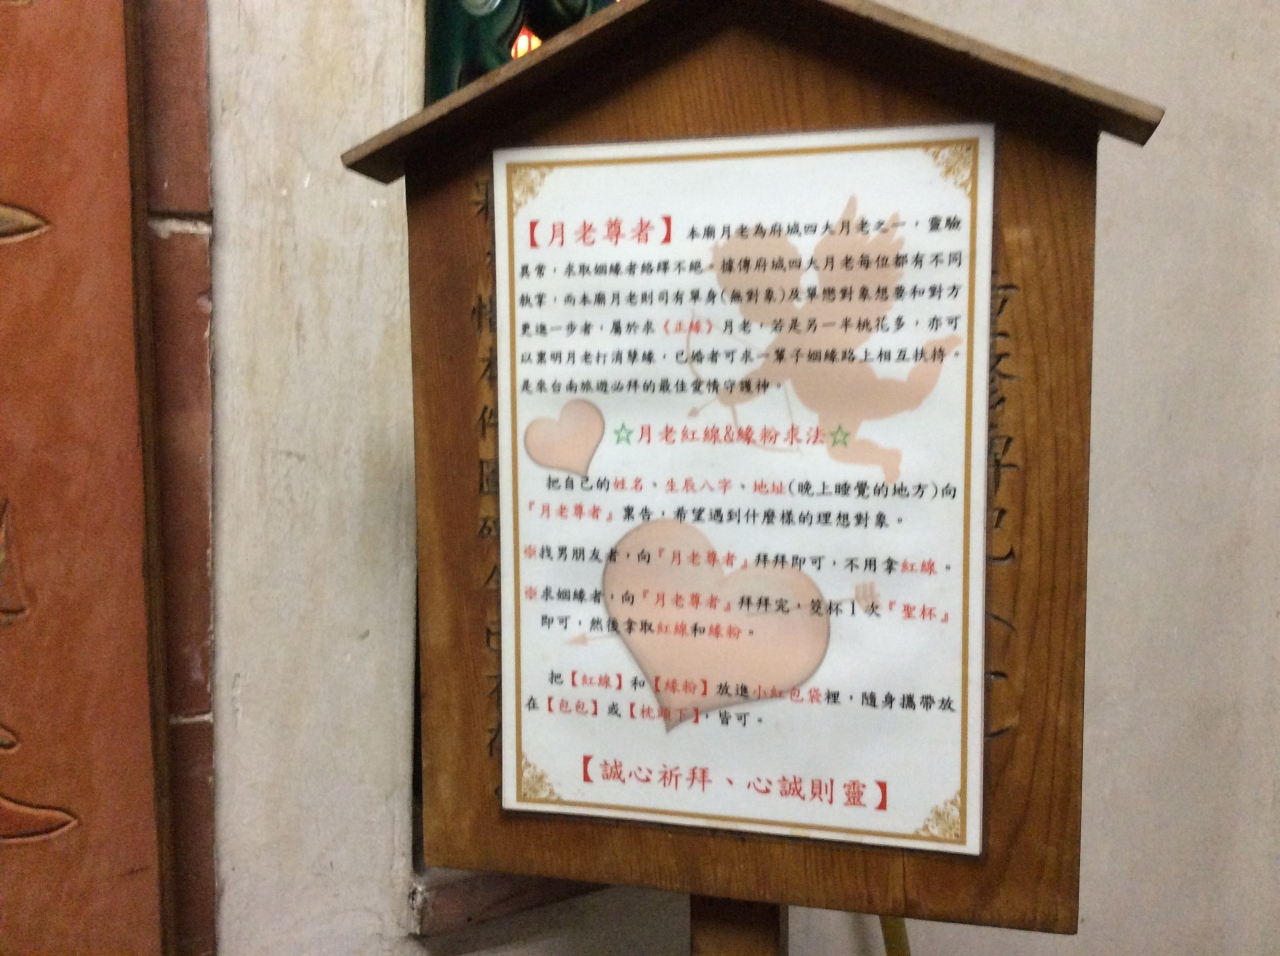 【月老尊者】本廟月老為府城四大月老之一，靈驗
異常，求取姻緣者絡繹不絕。據傳府城四大月老每位都有不同
執掌，而本廟月老則司有單身(無對象)及單戀對象想要和對方
更進一步者，屬於求《正緣》月老，若是另一半桃花多，亦可
以稟明月老打消孽緣，已婚者可求一輩子姻緣路上相互扶持。
是來台南旅遊必拜的最佳愛情守護神。
☆月老紅線&緣粉求法☆
把自己的姓名、生辰八字、地址(晚上睡覺的地方)向
『月老尊者』稟告，希望遇到什麼樣的理想對象。
※找男朋友者，向『月老尊者』拜拜即可，不用拿紅線。
※求姻緣者，向『月老尊者』拜拜完，筊杯1次『聖杯』
即可，然後拿取紅線和緣粉。
把【紅線】和【緣粉】放進小紅包袋裡，隨身攜帶放
在【包包】或【枕頭下】，皆可。
【誠心祈拜、心誠則靈】